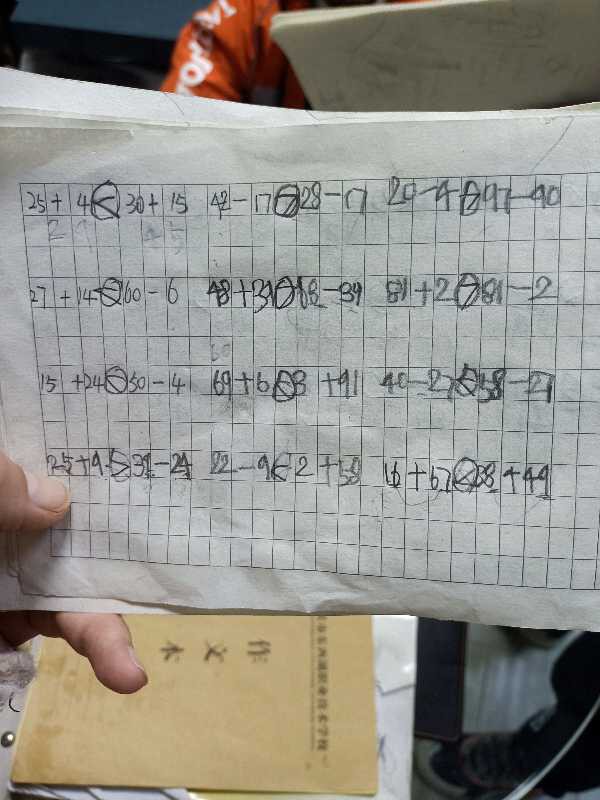 25 + 4 < 30 + 15 42 - 17 > 28 - 17 20 - 4 > 97 - 90
27 + 14 < 60 - 6 48 + 39 > 68 - 39 81 + 2 > 81 - 2
15 + 24 < 50 - 4 69 + 6 > 3 + 41 40 - 27 < 58 - 27
25 + 9 > 39 - 24 22 - 9 < 2 + 58 16 + 67 < 38 + 49
作文本